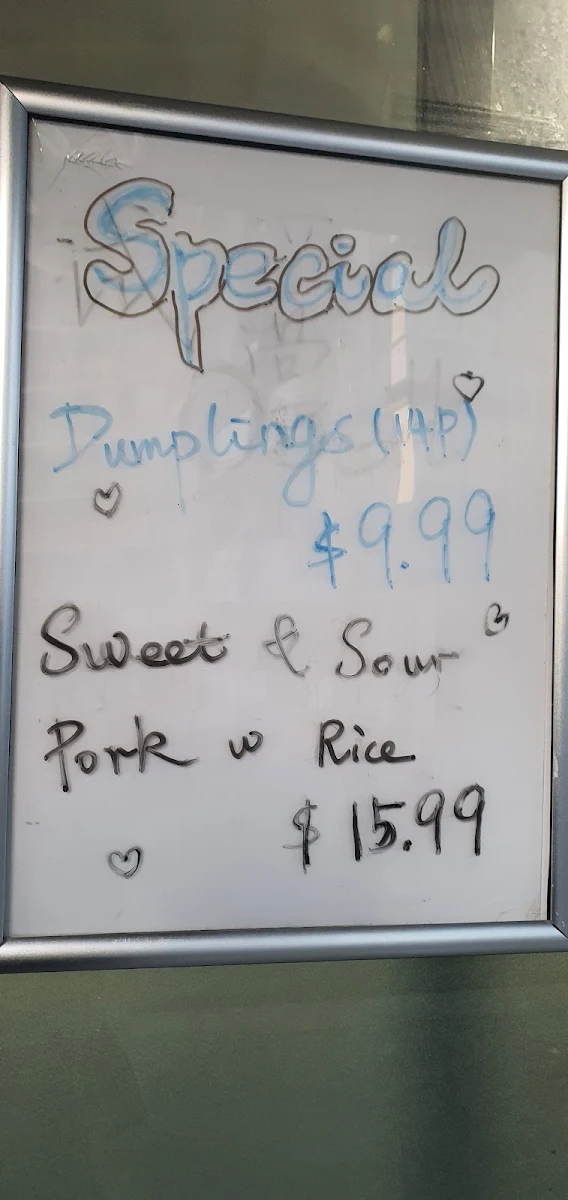 Special
Dumplings (14P)
$9.99
Sweet & Sour
Pork w Rice
$15.99